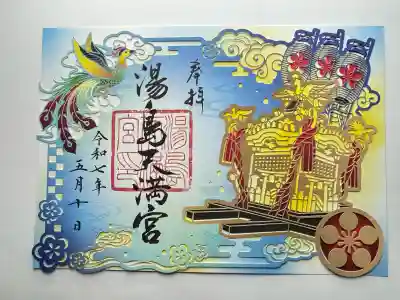 奉拝
湯島天満宮
令和七年
五月十日